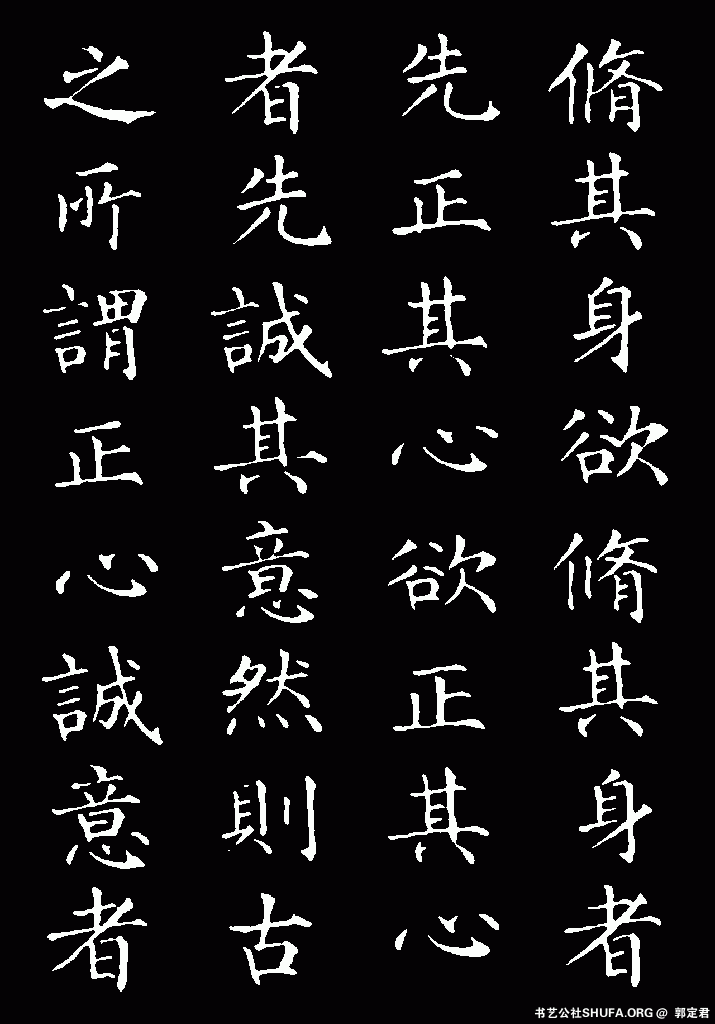 脩其身欲脩其身者
先正其心欲正其心
者先誠其意然則古
之所謂正心誠意者
书艺公社SHUFA.ORG @ 郭定君